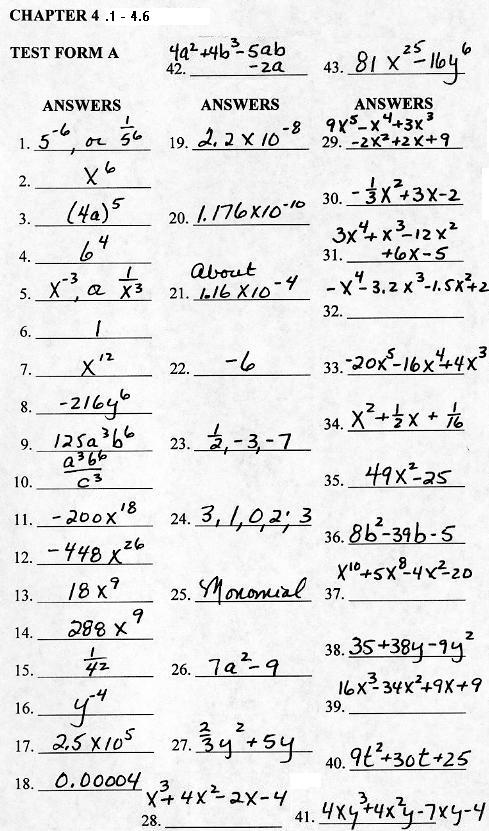 CHAPTER 4 .1 - 4.6
TEST FORM A
42. 4a² + 4b³ - 5ab
- 2a
43. 81 x²⁵ - 16y⁶
ANSWERS
1. 5⁻⁶, or 1/5⁶
2. x⁶
3. (4a)⁵
4. 6⁴
5. x⁻³, or 1/x³
6. 1
7. x¹²
8. -216y⁶
9. 125a³b⁶
10. a³b⁶/c³
11. -200x¹⁸
12. -448x²⁶
13. 18x⁹
14. 288x⁹
15. 1/42
16. y⁻⁴
17. 2.5 x 10⁵
18. 0.00004
ANSWERS
19. 2.2 x 10⁻⁸
20. 1.176x10⁻¹⁰
About
21. 1.16 x10⁻⁴
22. -6
23. 1/2, -3, -7
24. 3, 1, 0, 2; 3
25. Monomial
26. 7a² - 9
27. 2/3 y² + 5y
28. x³ + 4x² - 2x - 4
ANSWERS
9x⁵ - x⁴ + 3x³
29. -2x² + 2x + 9
30. -1/3 x² + 3x - 2
3x⁴ + x³ - 12x²
31. + 6x - 5
-x⁴ - 3.2x³ - 1.5x² + 2
32.
33. -20x⁵ - 16x⁴ + 4x³
34. x² + 1/2 x + 1/16
35. 49x² - 25
36. 8b² - 39b - 5
x¹⁰ + 5x⁸ - 4x² - 20
37.
38. 35 + 38y - 9y²
16x³ - 34x² + 9x + 9
39.
40. 9t² + 30t + 25
41. 4xy³ + 4x²y - 7xy - 4